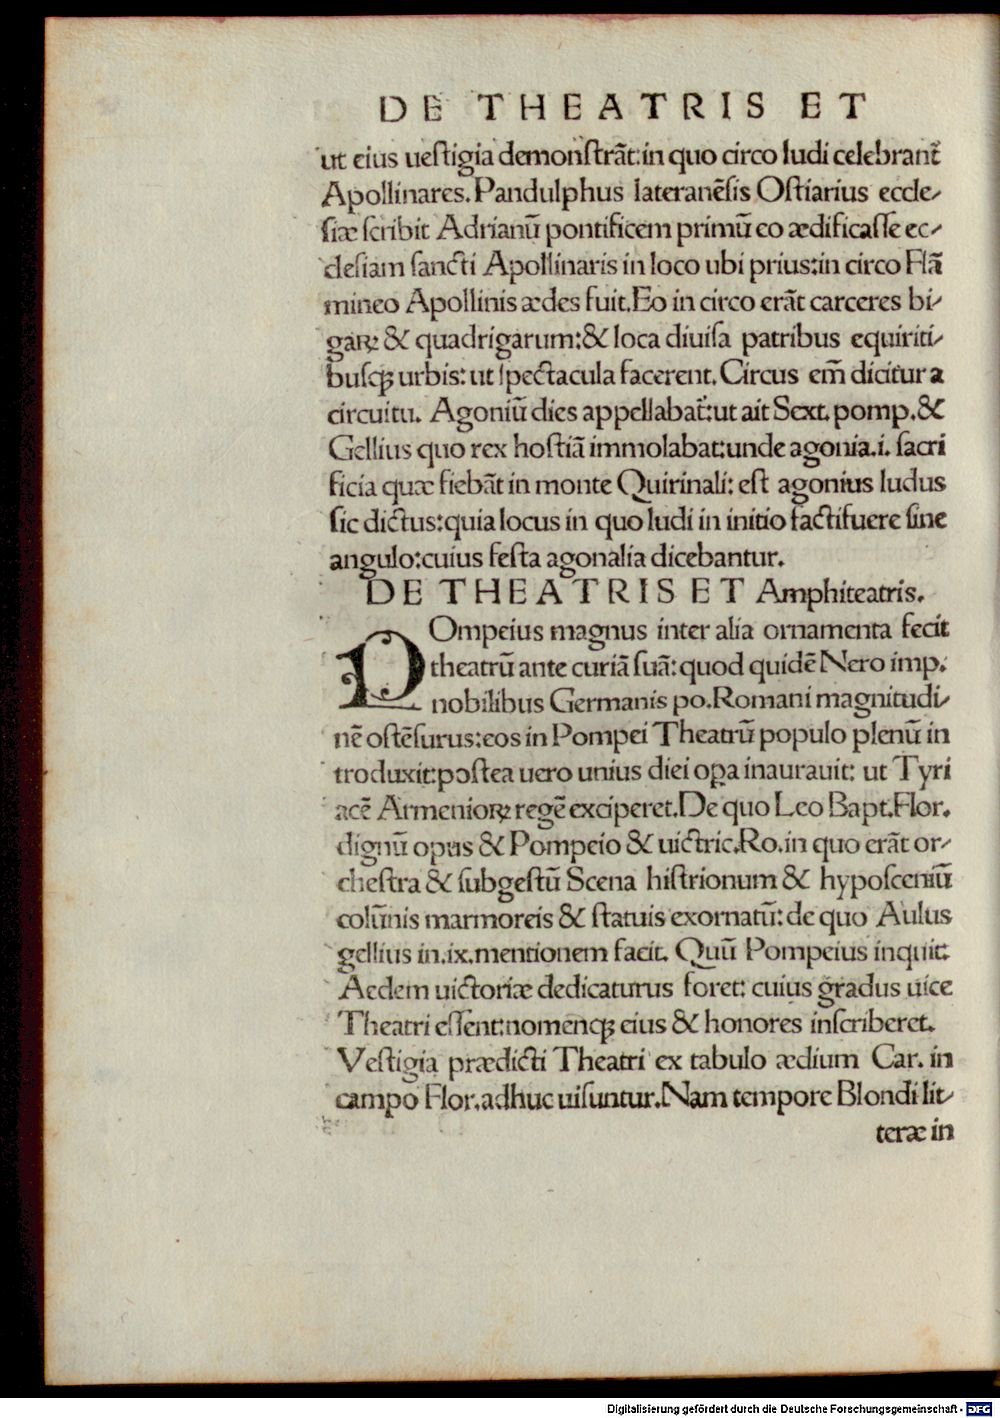 DE THEATRIS ET
ut eius ueſtigia demonſtrāt:in quo circo ludi celebrant̄
Apollinares.Pandulphus lateranēſis Oſtiarius eccle⸗
ſiæ ſcribit Adrianū pontificem primū eo ædificaſſe ec⸗
cleſiam ſancti Apollinaris in loco ubi prius:in circo Flā
mineo Apollinis ædes fuit.Eo in circo erāt carceres bi⸗
gaꝝ & quadrigarum:& loca diuiſa patribus equiriti⸗
buſqꝫ urbis: ut ſpectacula facerent. Circus em̄ dicitur a
circuitu. Agoniū dies appellabat̄:ut ait Sext. pomp.&
Gellius quo rex hoſtiā immolabat:unde agonia.i. ſacri
ficia quæ fiebāt in monte Quirinali: eſt agonius ludus
ſic dictus:quia locus in quo ludi in initio facti fuere ſine
angulo:cuius feſta agonalia dicebantur.
DE THEATRIS ET Amphiteatris.
POmpeius magnus inter alia ornamenta fecit
theatrū ante curiā ſuā: quod quidē Nero imp.
nobilibus Germanis po.Romani magnitudi⸗
nē oſtēſurus:eos in Pompei Theatrū populo plenū in
troduxit:poſtea uero unius diei oꝑa inaurauit: ut Tyri
acē Armenioꝝ regē exciperet.De quo Leo Bapt.Flor.
dignū opus & Pompeio & uictric.Ro.in quo erāt or⸗
cheſtra & ſubgeſtū Scena hiſtrionum & hypoſceniū
colūnis marmoreis & ſtatuis exornatū: de quo Aulus
gellius in.ix.mentionem facit. Quū Pompeius inquit:
Aedem uictoriæ dedicaturus foret: cuius gradus uice
Theatri eſſent:nomenqꝫ eius & honores inſcriberet.
Veſtigia prædicti Theatri ex tabulo ædium Car. in
campo Flor.adhuc uiſuntur.Nam tempore Blondi lit⸗
teræ in
Digitalisierung gefördert durch die Deutsche Forschungsgemeinschaft - DFG